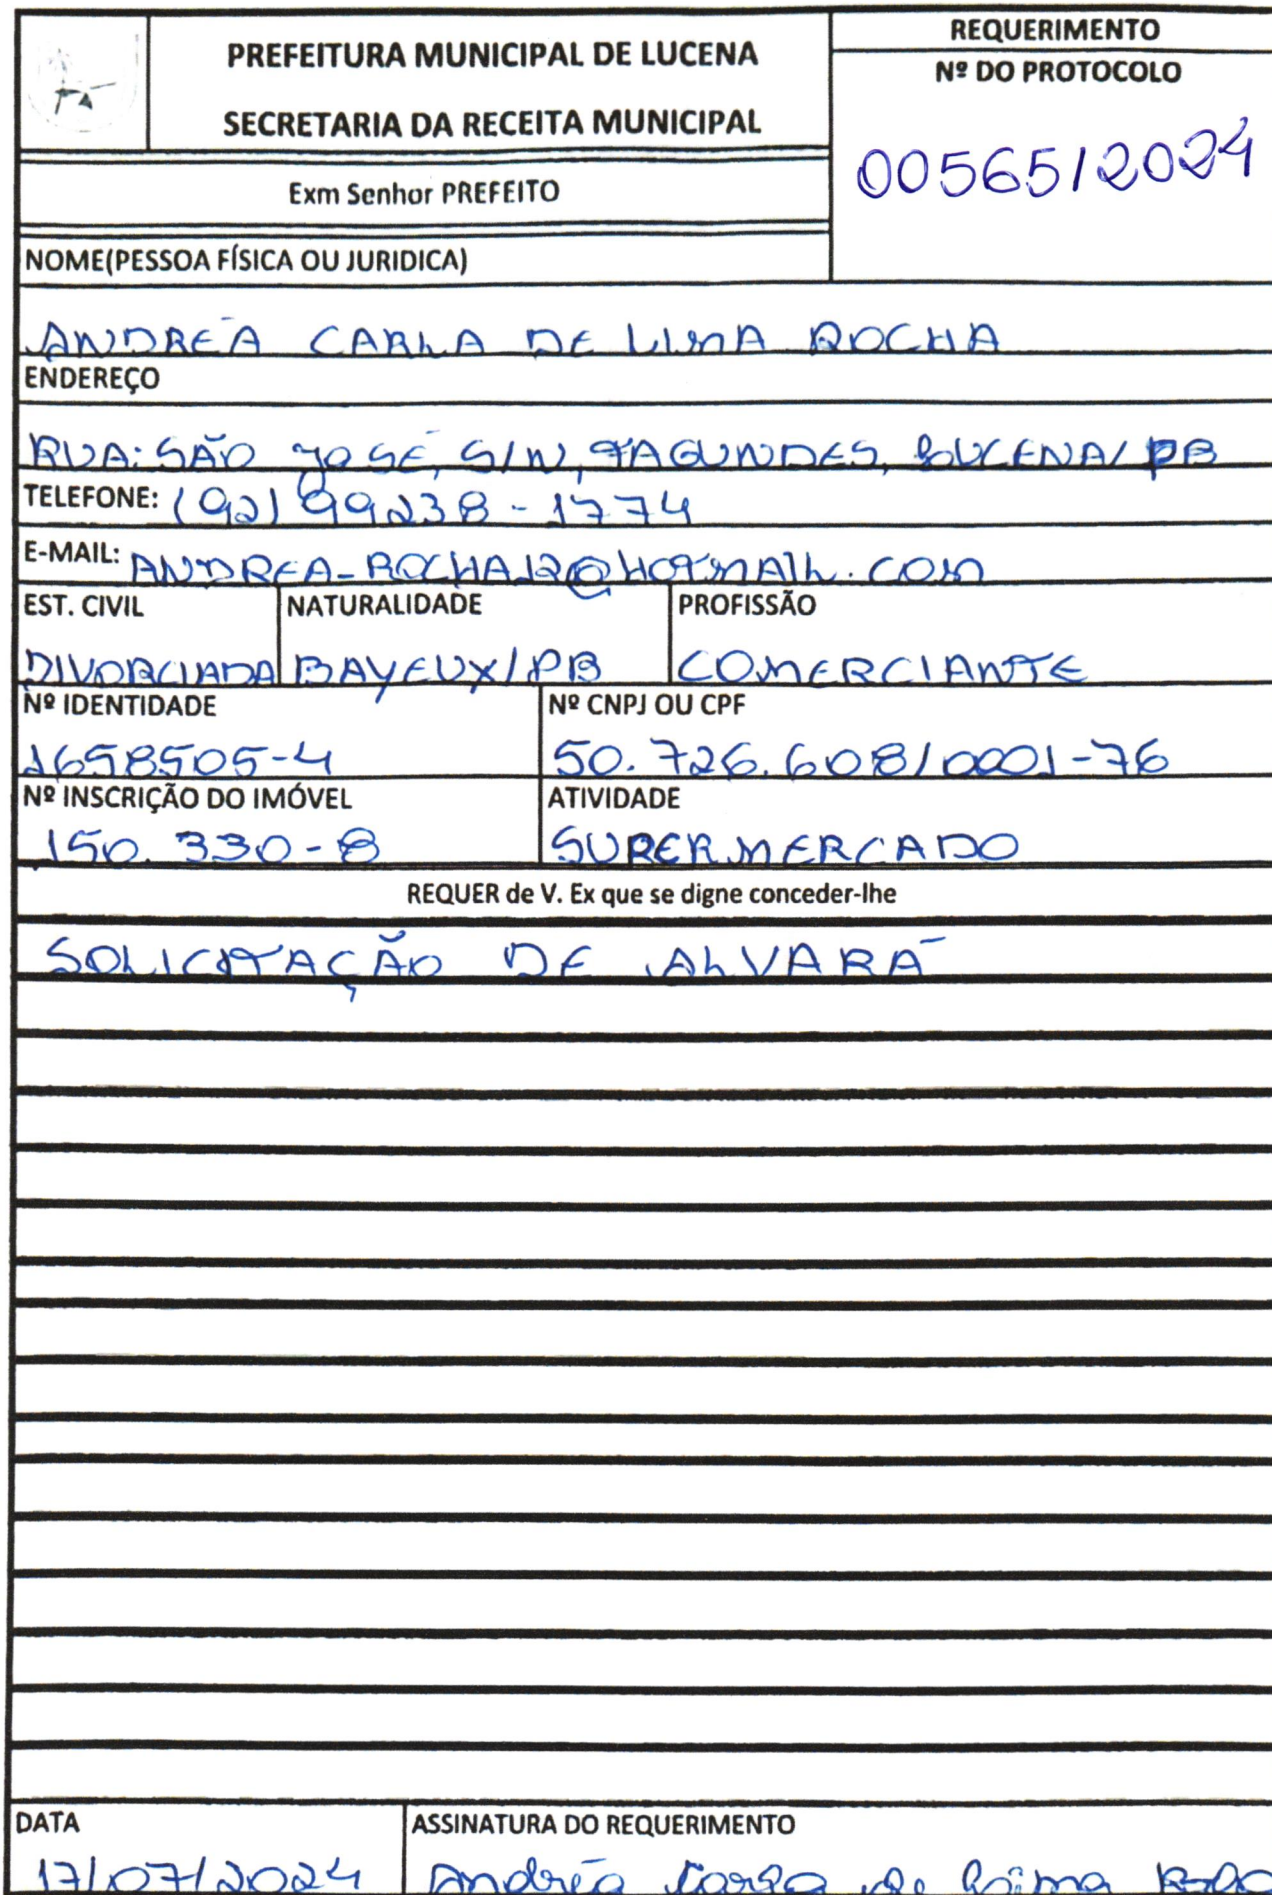 PREFEITURA MUNICIPAL DE LUCENA
SECRETARIA DA RECEITA MUNICIPAL
REQUERIMENTO
Nº DO PROTOCOLO
00565/2024
Exm Senhor PREFEITO
NOME(PESSOA FÍSICA OU JURIDICA)
ANDRÉA CARLA DE LIMA ROCHA
ENDEREÇO
RUA: SÃO JOSÉ, S/N, FAGUNDES, LUCENA/PB
TELEFONE: (92) 99238-1774
E-MAIL: ANDREA-ROCHA12@HOTMAIL.COM
EST. CIVIL NATURALIDADE PROFISSÃO
DIVORCIADA BAYEUX/PB COMERCIANTE
Nº IDENTIDADE Nº CNPJ OU CPF
1658505-4 50.726.608/0001-76
Nº INSCRIÇÃO DO IMÓVEL ATIVIDADE
150.330-8 SUPERMERCADO
REQUER de V. Ex que se digne conceder-lhe
SOLICITAÇÃO DE ALVARÁ
DATA ASSINATURA DO REQUERIMENTO
17/07/2024 Andréa Carla de Lima